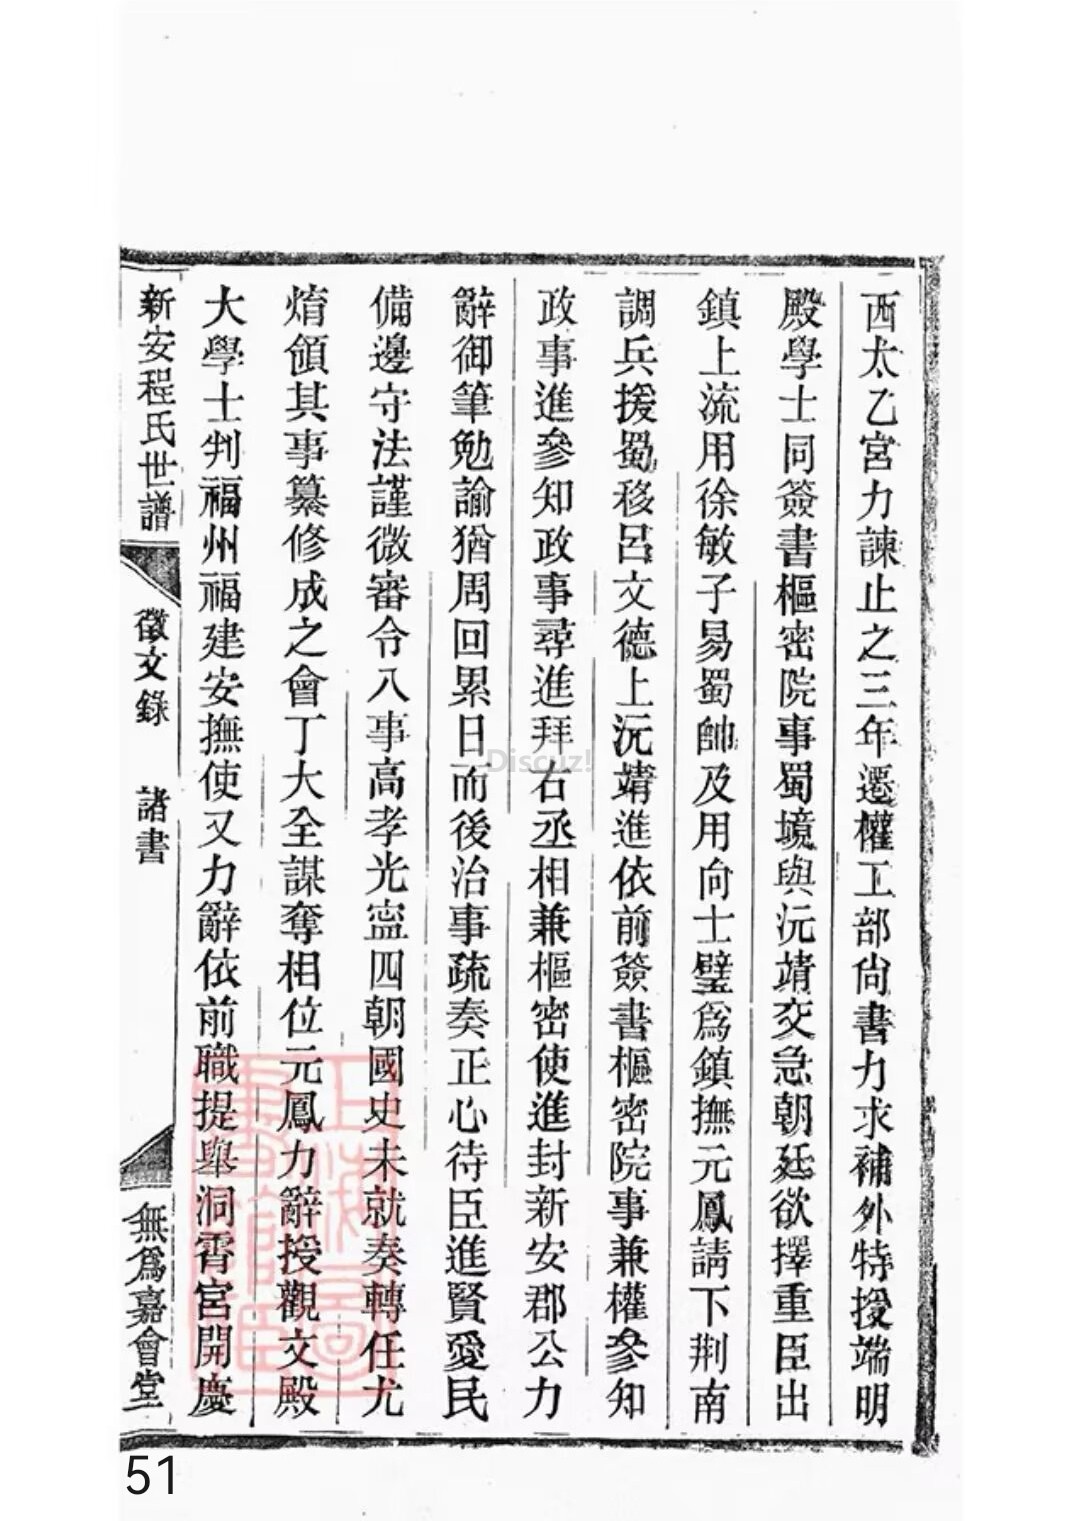 西太乙宮力諫止之三年遷權工部尙書力求補外特授端明
殿學士同簽書樞密院事蜀境與沅靖交急朝廷欲擇重臣出
鎮上流用徐敏子易蜀帥及用向士璧爲鎮撫元鳳請下荆南
調兵援蜀移呂文德上沅靖進依前簽書樞密院事兼權參知
政事進參知政事尋進拜右丞相兼樞密使進封新安郡公力
辭御筆勉諭猶周回累日而後治事疏奏正心待臣進賢愛民
備邊守法謹微審令八事高孝光寍四朝國史未就奏轉任尤
焴領其事纂修成之會丁大全謀奪相位元鳳力辭授觀文殿
大學士判福州福建安撫使又力辭依前職提舉洞霄宮開慶
新安程氏世譜
徵文錄 諸書
無爲嘉會堂
上海圖書館藏
Discuz!
51